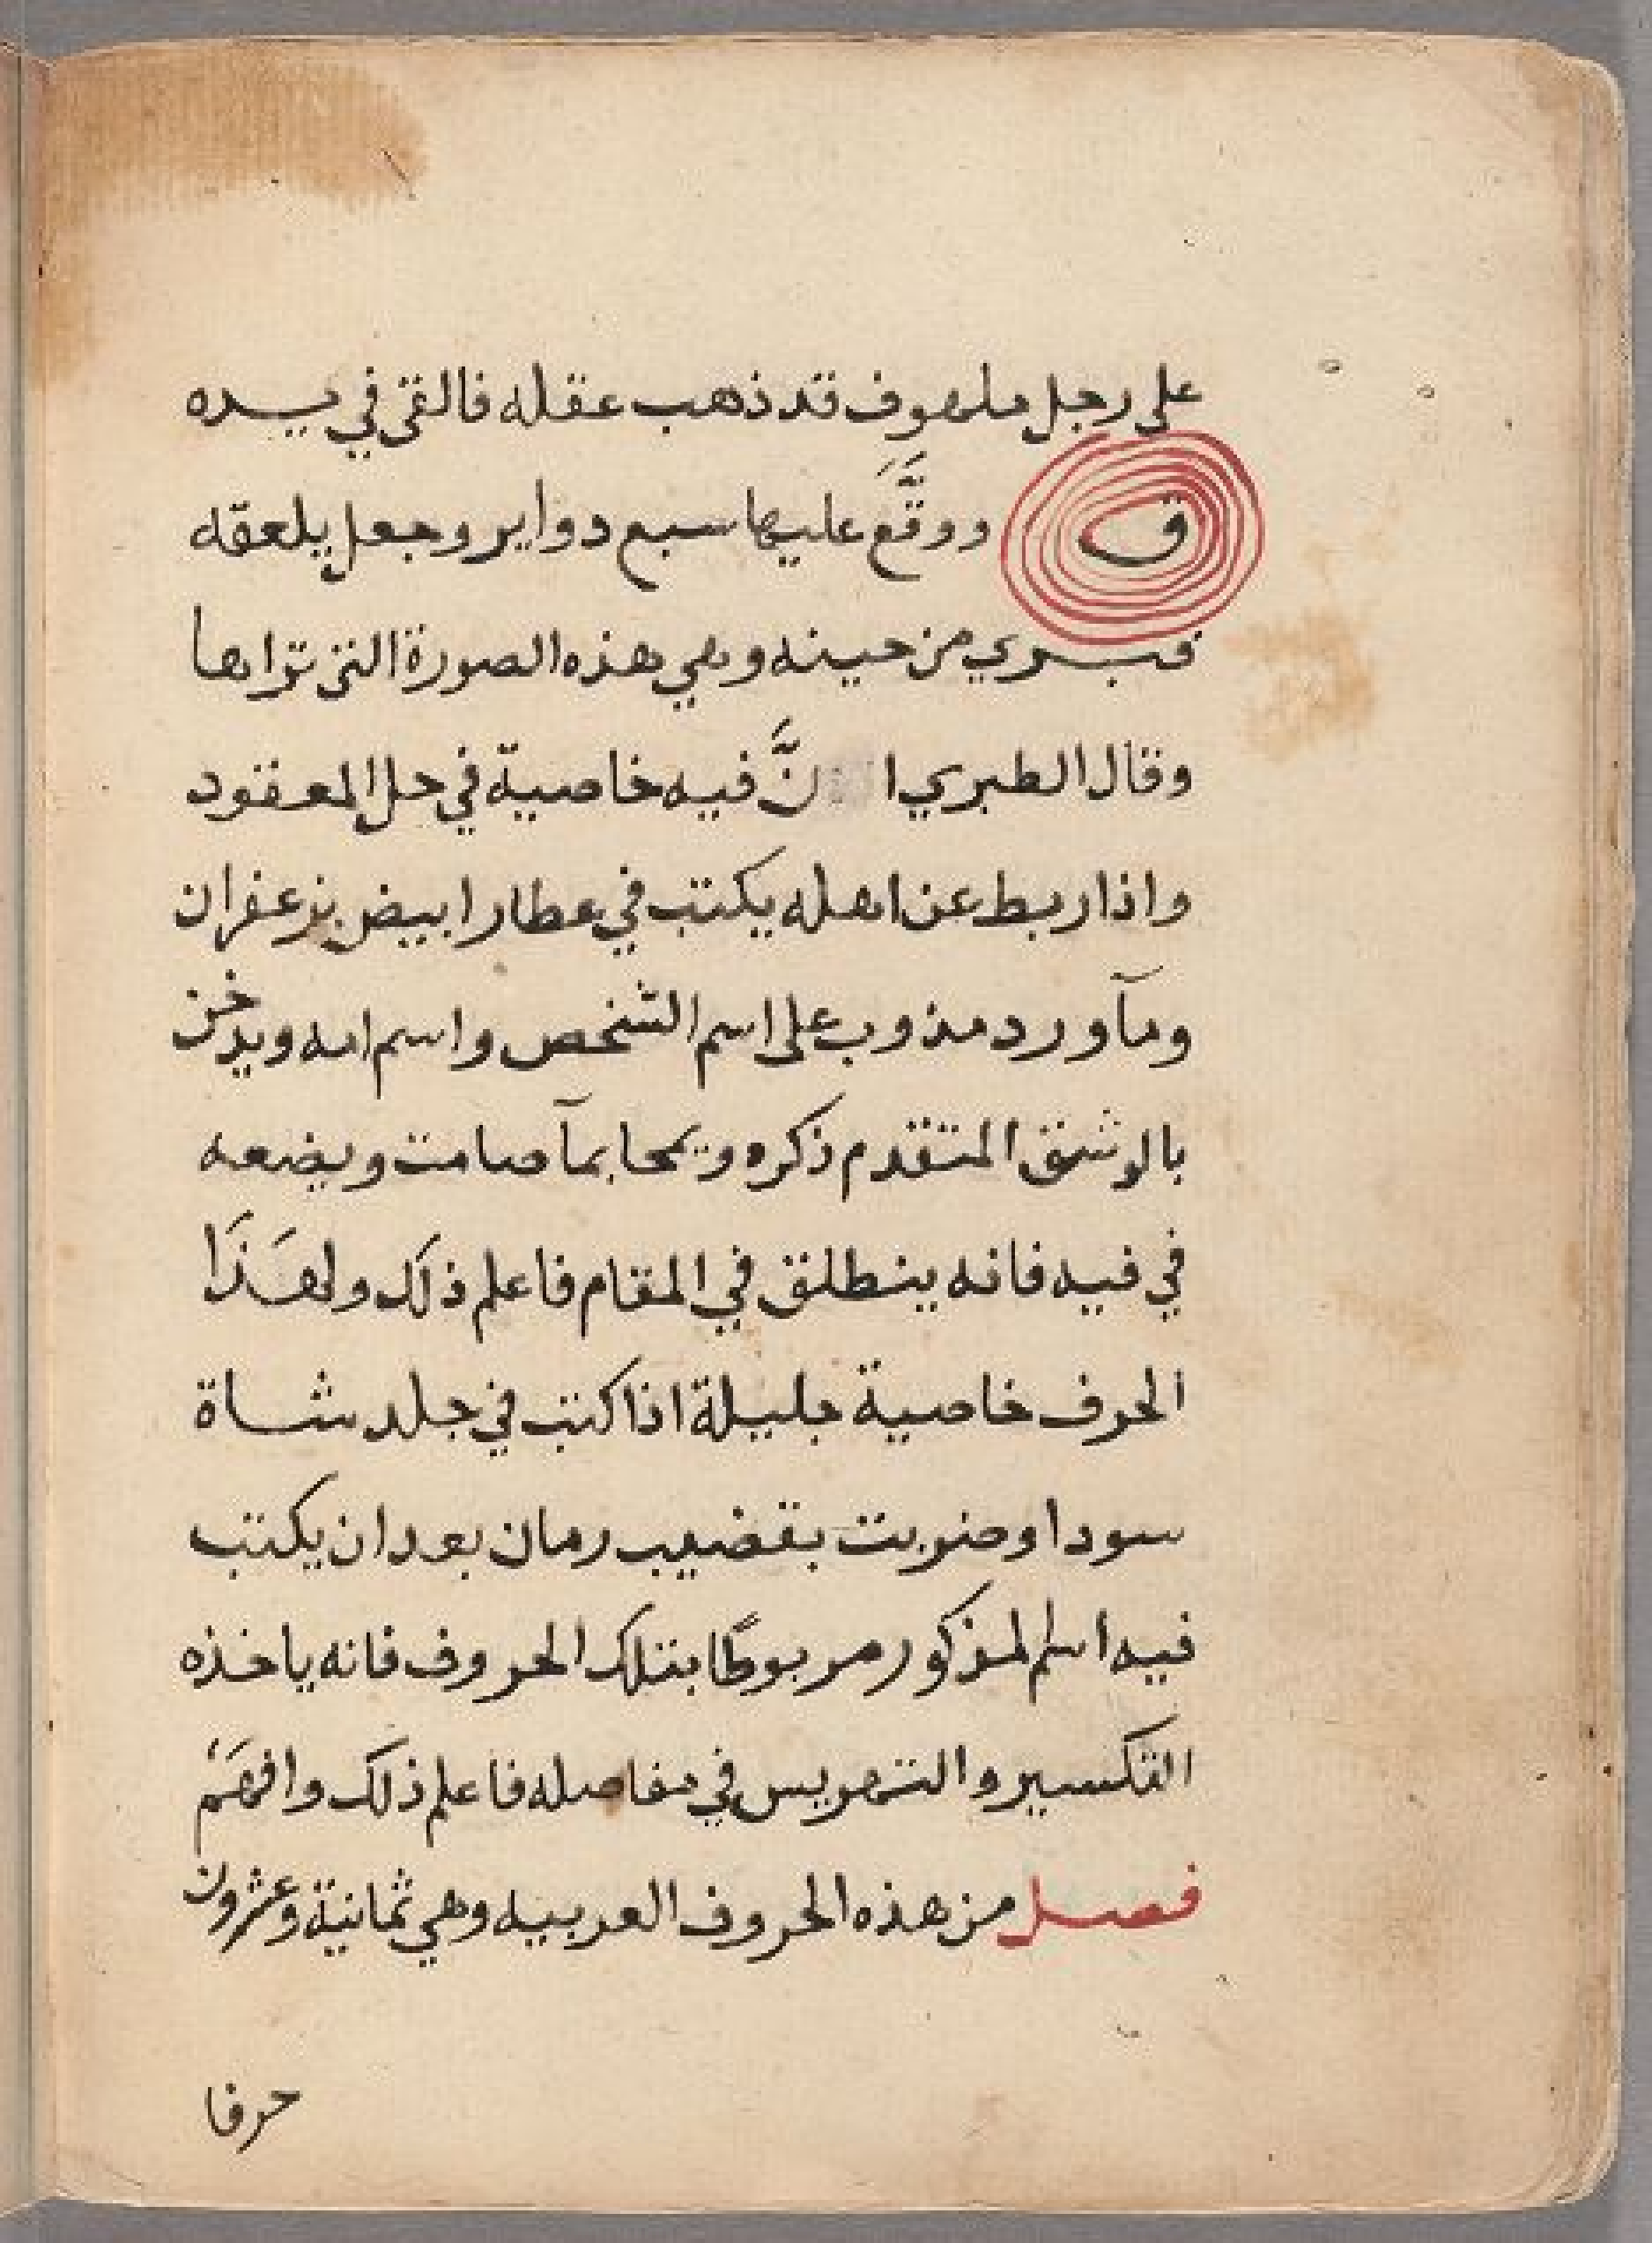 على رجل ملهوف قد ذهب عقله فالقى في يده
ق ووقَّعَ عليها سبع دواير وجعل يلعقه
فبري من حينه وهي هذه الصورة التي تراها
وقال الطبري ا نَّ فيه خاصية في حل المعقود
واذا ربط عن اهله يكتب في عطار ابيض بزعفران
ومآ ورد مذوب على اسم الشخص واسم امه ويدخن
بالوشق المتقدم ذكره ويمحا بمآ صامت ويضعه
في فيه فانه ينطلق في المقام فاعلم ذلك ولهَذَا
الحرف خاصية جليلة اذا كتب في جلد شاة
سودا وضربت بقضيب رمان بعد ان يكتب
فيه اسم المذكور مربوطًا بتلك الحروف فانه ياخذه
التكسير والتهريس في مفاصله فاعلم ذلك وافهَمْ
فصل من هذه الحروف العربيه وهي ثمانية وعشرون
حرفا